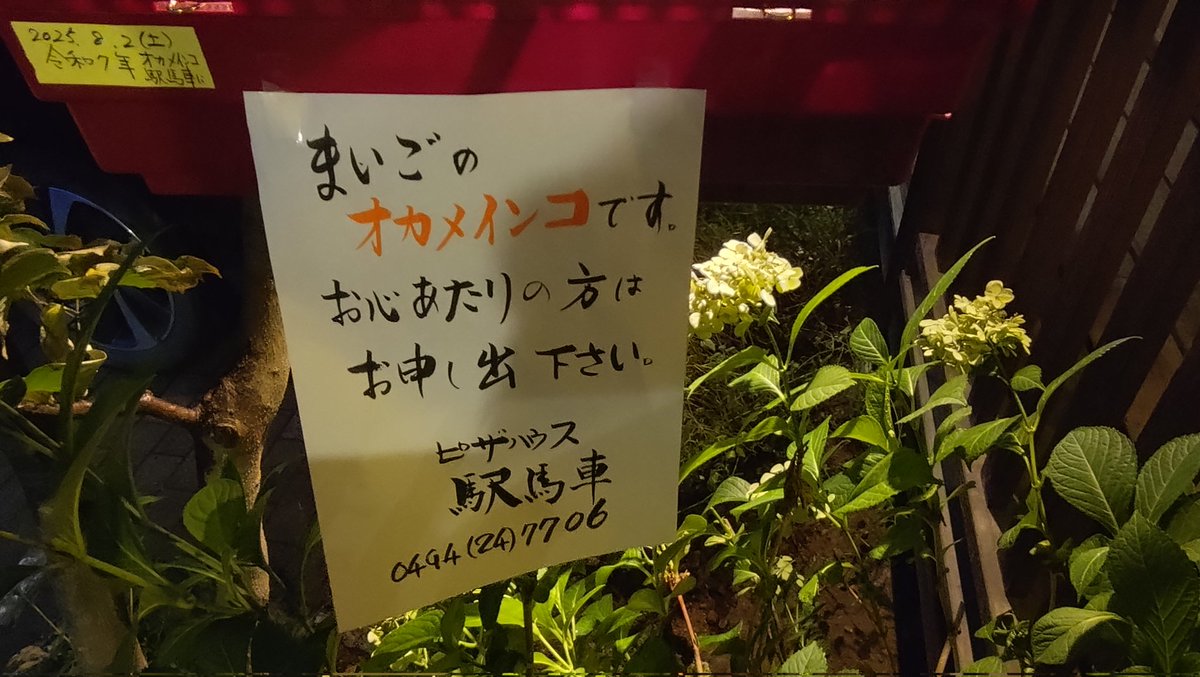 2025.8.2(土)
令和7年 オカメインコ
駅馬車に
まいごの
オカメインコです。
お心あたりの方は
お申し出下さい。
ピザハウス
駅馬車
0494(24)7706